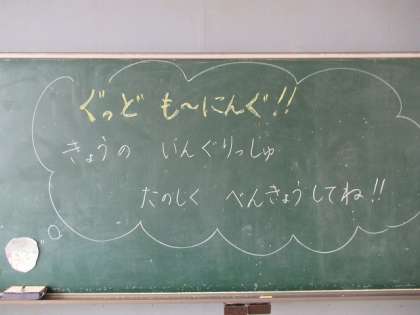 ぐっど も〜にんぐ!!
きょうの いんぐりっしゅ
たのしく べんきょうしてね!!